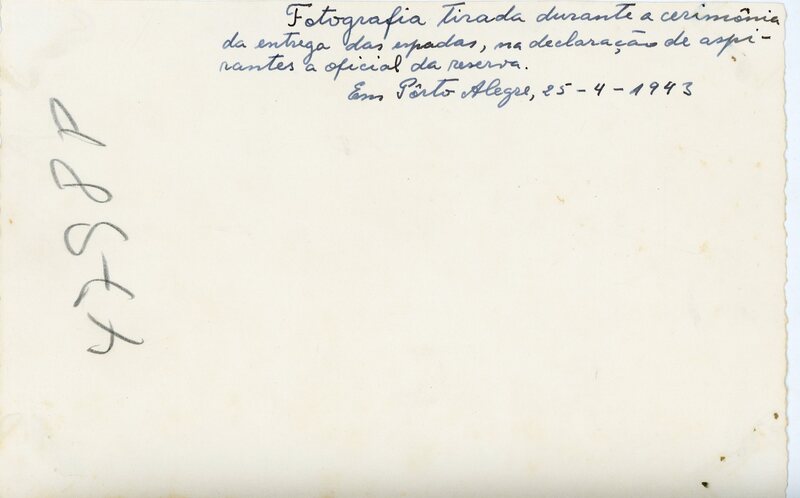 Fotografia tirada durante a cerimônia
da entrega das espadas, na declaração de aspi-
rantes a oficial da reserva.
Em Pôrto Alegre, 25-4-1943
4798P